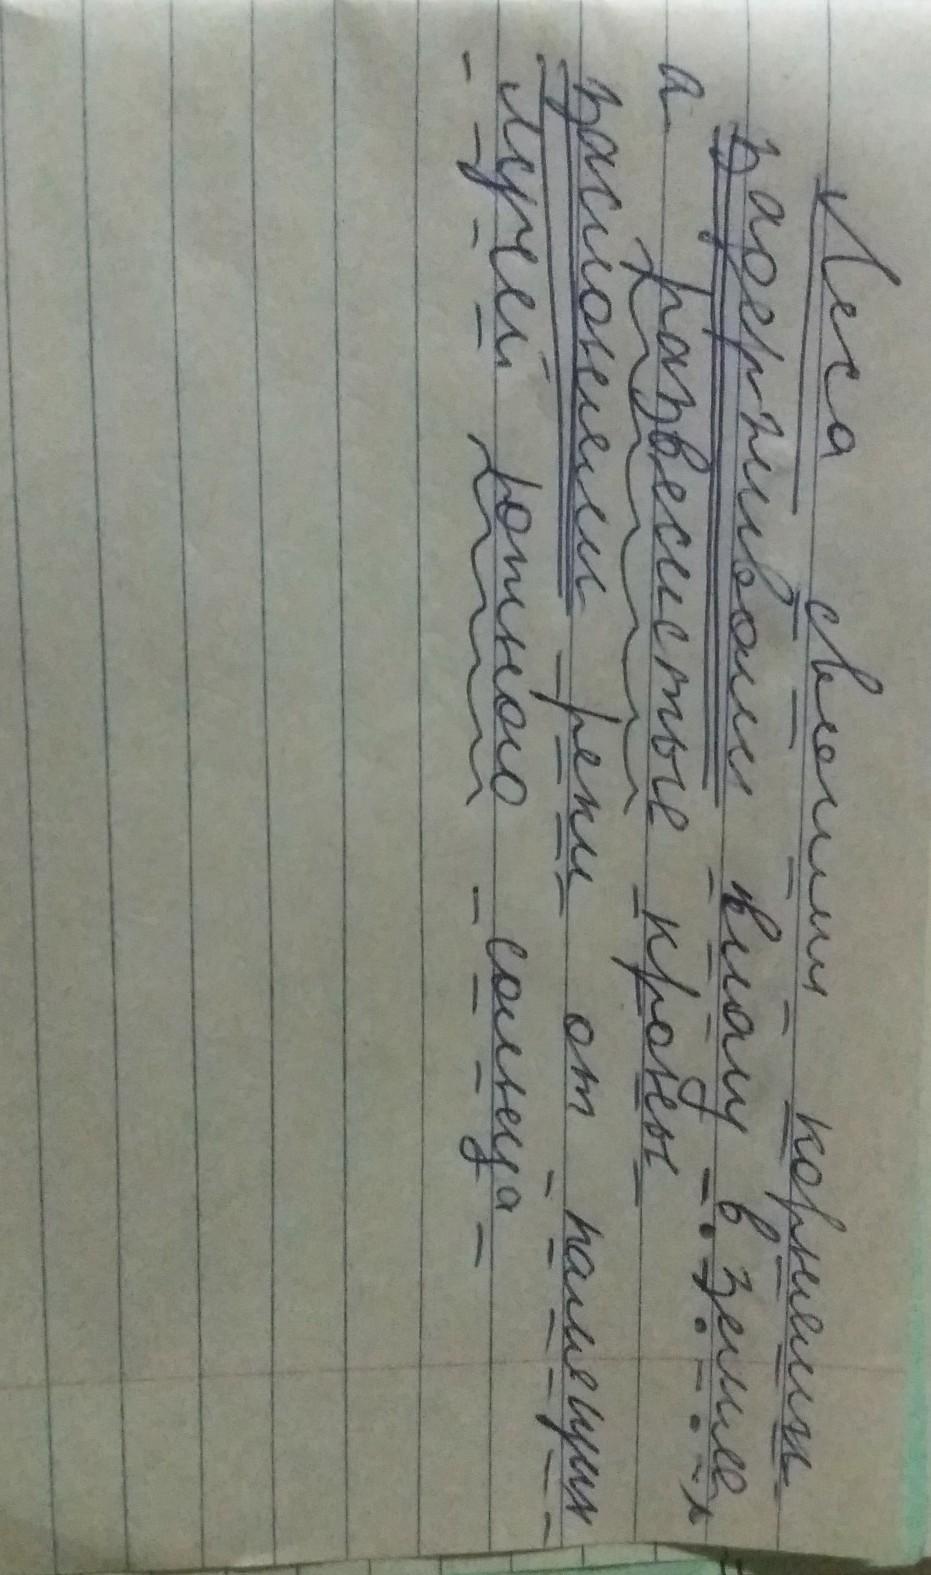 Леса своими корнями
задерживали влагу в земле,
а развесистые кроны
заслоняли реки от палящих
лучей южного солнца